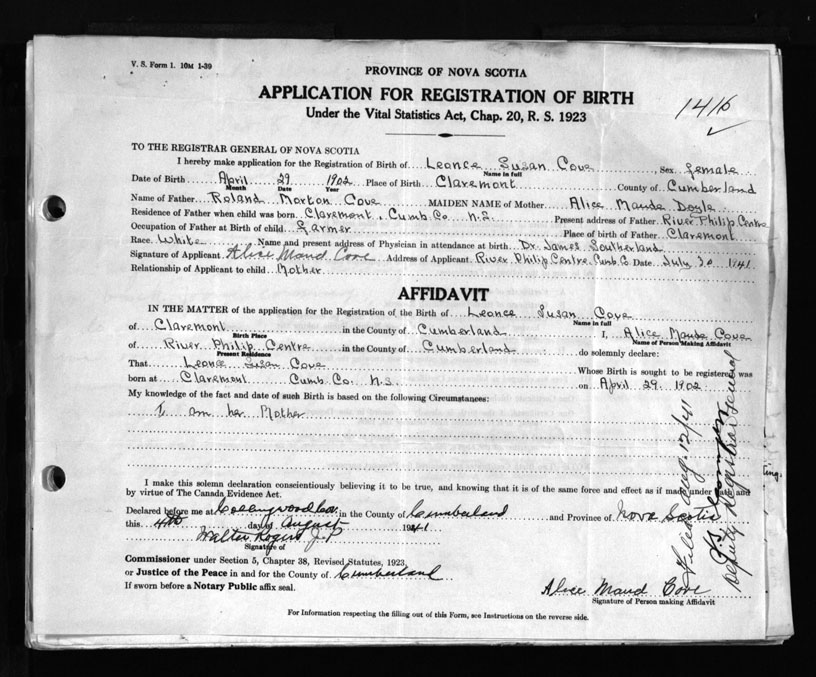 V. S. Form 1. 10M 1-39
PROVINCE OF NOVA SCOTIA
APPLICATION FOR REGISTRATION OF BIRTH
Under the Vital Statistics Act, Chap. 20, R. S. 1923
1416
TO THE REGISTRAR GENERAL OF NOVA SCOTIA
I hereby make application for the Registration of Birth of Leonce Susan Cove, Sex female
Name in full
Date of Birth April 29 1902 Place of Birth Claremont County of Cumberland
Month Date Year
Name of Father Roland Morton Cove MAIDEN NAME of Mother Alice Maude Doyle
Residence of Father when child was born. Claremont, Cumb. Co. N.S. Present address of Father. River Philip Centre
Occupation of Father at Birth of child Farmer Place of birth of Father Claremont
Race. White Name and present address of Physician in attendance at birth Dr. James Southerland
Signature of Applicant Alice Maud Cove Address of Applicant. River Philip Centre, Cumb. Co Date July 30 1941
Relationship of Applicant to child Mother
AFFIDAVIT
IN THE MATTER of the application for Registration of the Birth of Leonce Susan Cove
Name in full
of Claremont in the County of Cumberland I, Alice Maude Cove
Birth Place Name of Person Making Affidavit
of River Philip Centre in the County of Cumberland do solemnly declare:
Present Residence
That Leonce Susan Cove Whose Birth is sought to be registered was
born at Claremont Cumb. Co. N.S. on April 29, 1902
My knowledge of the fact and date of such Birth is based on the following Circumstances:
I am her Mother
I make this solemn declaration conscientiously believing it to be true, and knowing that it is of the same force and effect as if made under oath and
by virtue of The Canada Evidence Act.
Declared before me at Collingwood in the County of Cumberland and Province of Nova Scotia
this 4th day of August 1941
Walter Rogers J.P
Signature of
Commissioner under Section 5, Chapter 38, Revised Statutes, 1923,
or Justice of the Peace in and for the County of Cumberland
If sworn before a Notary Public affix seal.
Alice Maud Cove
Signature of Person making Affidavit
For Information respecting the filling out of this Form, see Instructions on the reverse side.
Filed Aug. 12/41
Deputy Registrar General